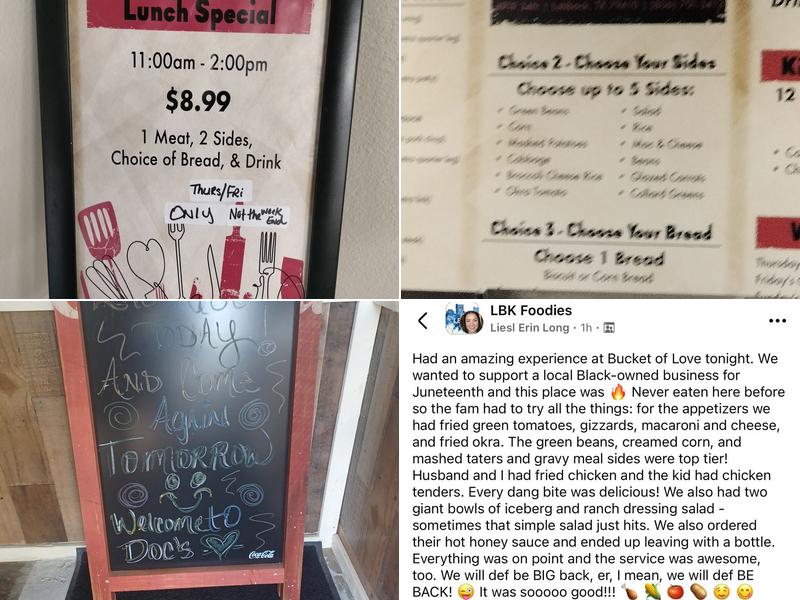 Lunch Special
11:00am - 2:00pm
$8.99
1 Meat, 2 Sides,
Choice of Bread, & Drink
THURS/FRI
ONLY Not the Week
End
Choice 2 - Choose Your Sides
Choose up to 5 Sides:
✓ Green Beans
✓ Corn
✓ Mashed Potatoes
✓ Cabbage
✓ Broccoli Cheese Rice
✓ Okra Tomato
✓ Salad
✓ Rice
✓ Mac & Cheese
✓ Beans
✓ Glazed Carrots
✓ Collard Greens
Choice 3 - Choose Your Bread
Choose 1 Bread
Biscuit or Corn Bread
12
Thursday
Friday's
TODAY
AND Come
Again
Tomorrow
Welcome to
Doc's
Coca-Cola
LBK Foodies
Liesl Erin Long · 1h ·
Had an amazing experience at Bucket of Love tonight. We
wanted to support a local Black-owned business for
Juneteenth and this place was 🔥 Never eaten here before
so the fam had to try all the things: for the appetizers we
had fried green tomatoes, gizzards, macaroni and cheese,
and fried okra. The green beans, creamed corn, and
mashed taters and gravy meal sides were top tier!
Husband and I had fried chicken and the kid had chicken
tenders. Every dang bite was delicious! We also had two
giant bowls of iceberg and ranch dressing salad -
sometimes that simple salad just hits. We also ordered
their hot honey sauce and ended up leaving with a bottle.
Everything was on point and the service was awesome,
too. We will def be BIG back, er, I mean, we will def BE
BACK! 😜 It was sooooo good!!! 🍗 🌽 🍅 🥔 🤤 😋